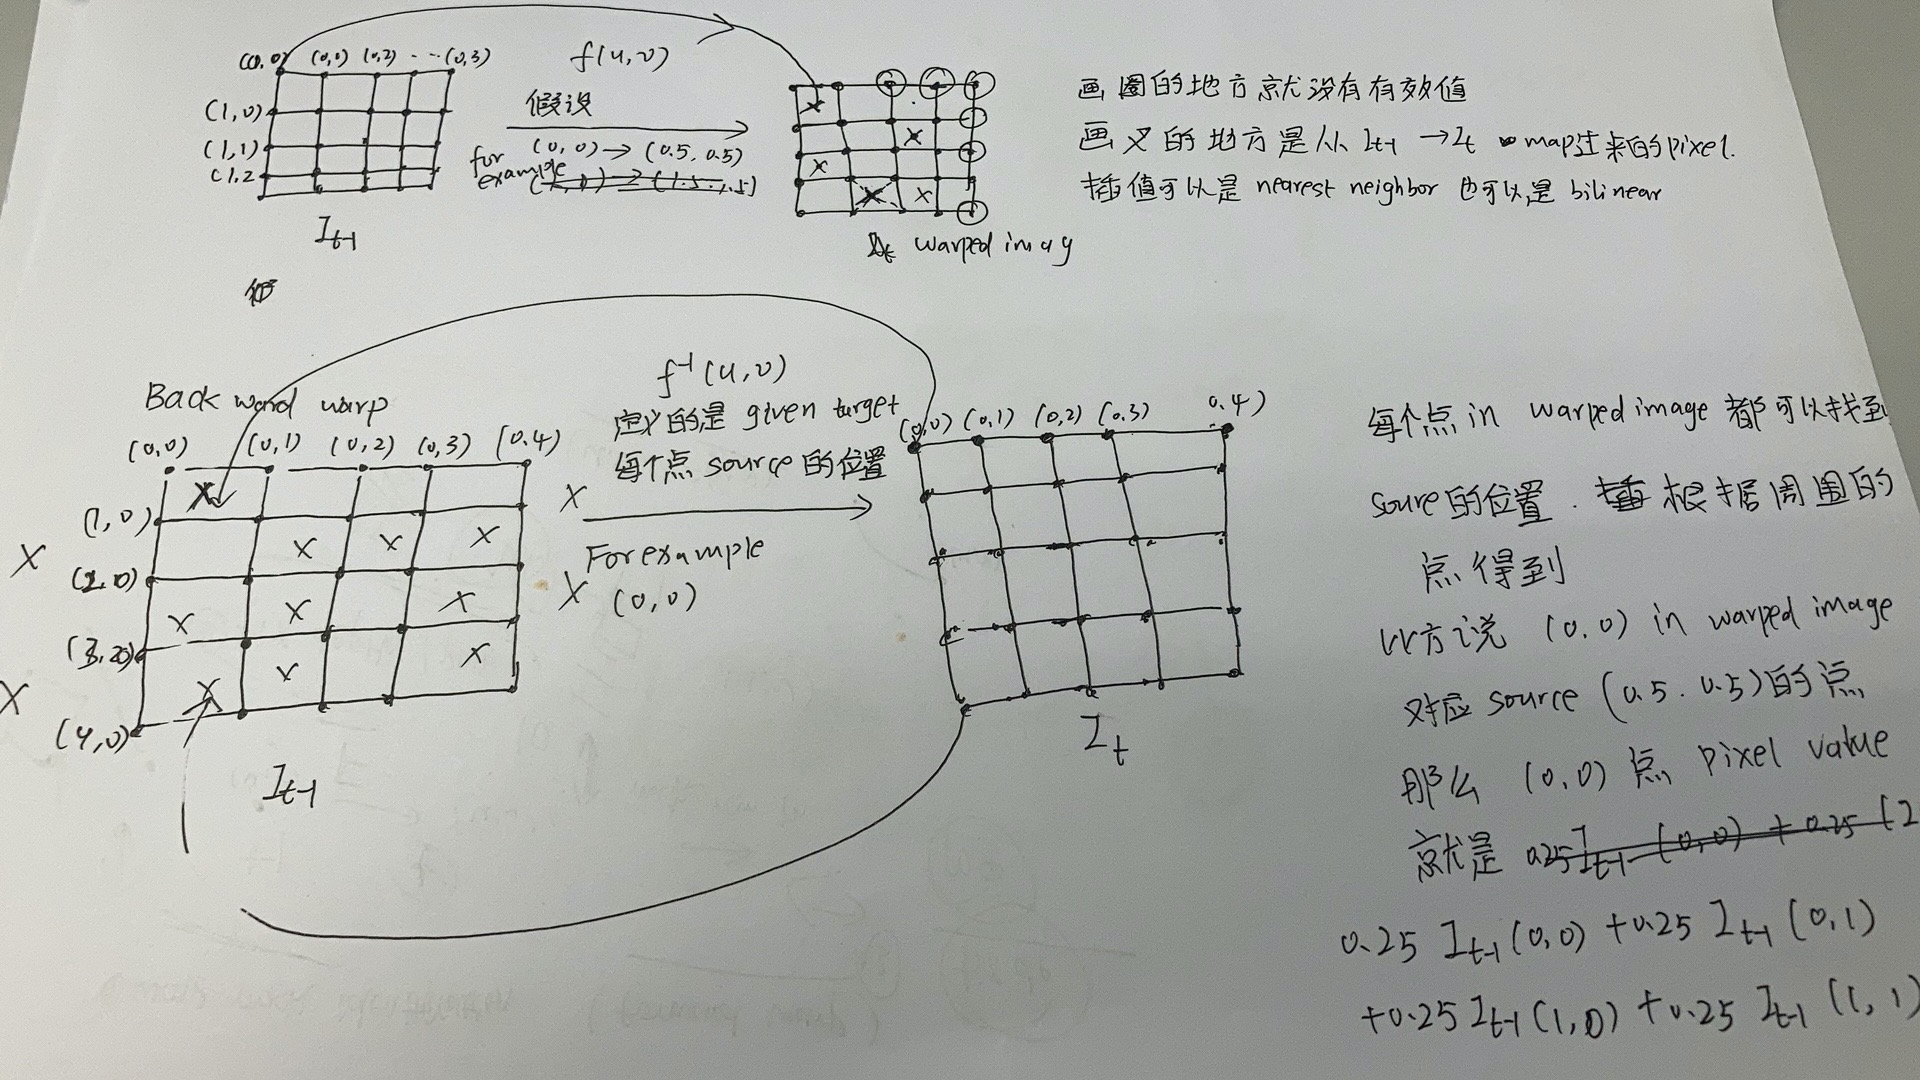 (0,0) (0,1) (0,2) ... (0,3)
(1,0)
(1,1)
(1,2
I t-1
f(u,v)
假设
for example (0,0) → (0.5, 0.5)
(1.5, 1.5)
warped imag
画圈的地方就没有有效值
画叉的地方是从 I t-1 → I t map过来的pixel.
插值可以是 nearest neighbor 也可以是 bilinear
Back word warp
(0,0) (0,1) (0,2) (0,3) (0.4)
(1,0)
(2,0)
(4,0)
I t-1
f⁻¹(u,v)
定义的是 given target
每个点 source 的位置
For example
(0,0)
(0,0) (0,1) (0,2) (0,3) 0.4)
I t
每个点 in warped image 都可以找到
soure的位置. 根据周围的
点得到
比方说 (0,0) in warped image
对应 source (0.5. 0.5)的点
那么 (0,0) 点 pixel value
就是 0.25 I t-1 (0,0) + 0.25 (2
0.25 I t-1 (0,0) + 0.25 I t-1 (0,1)
+0.25 I t-1 (1,0) + 0.25 I t-1 (1,1)